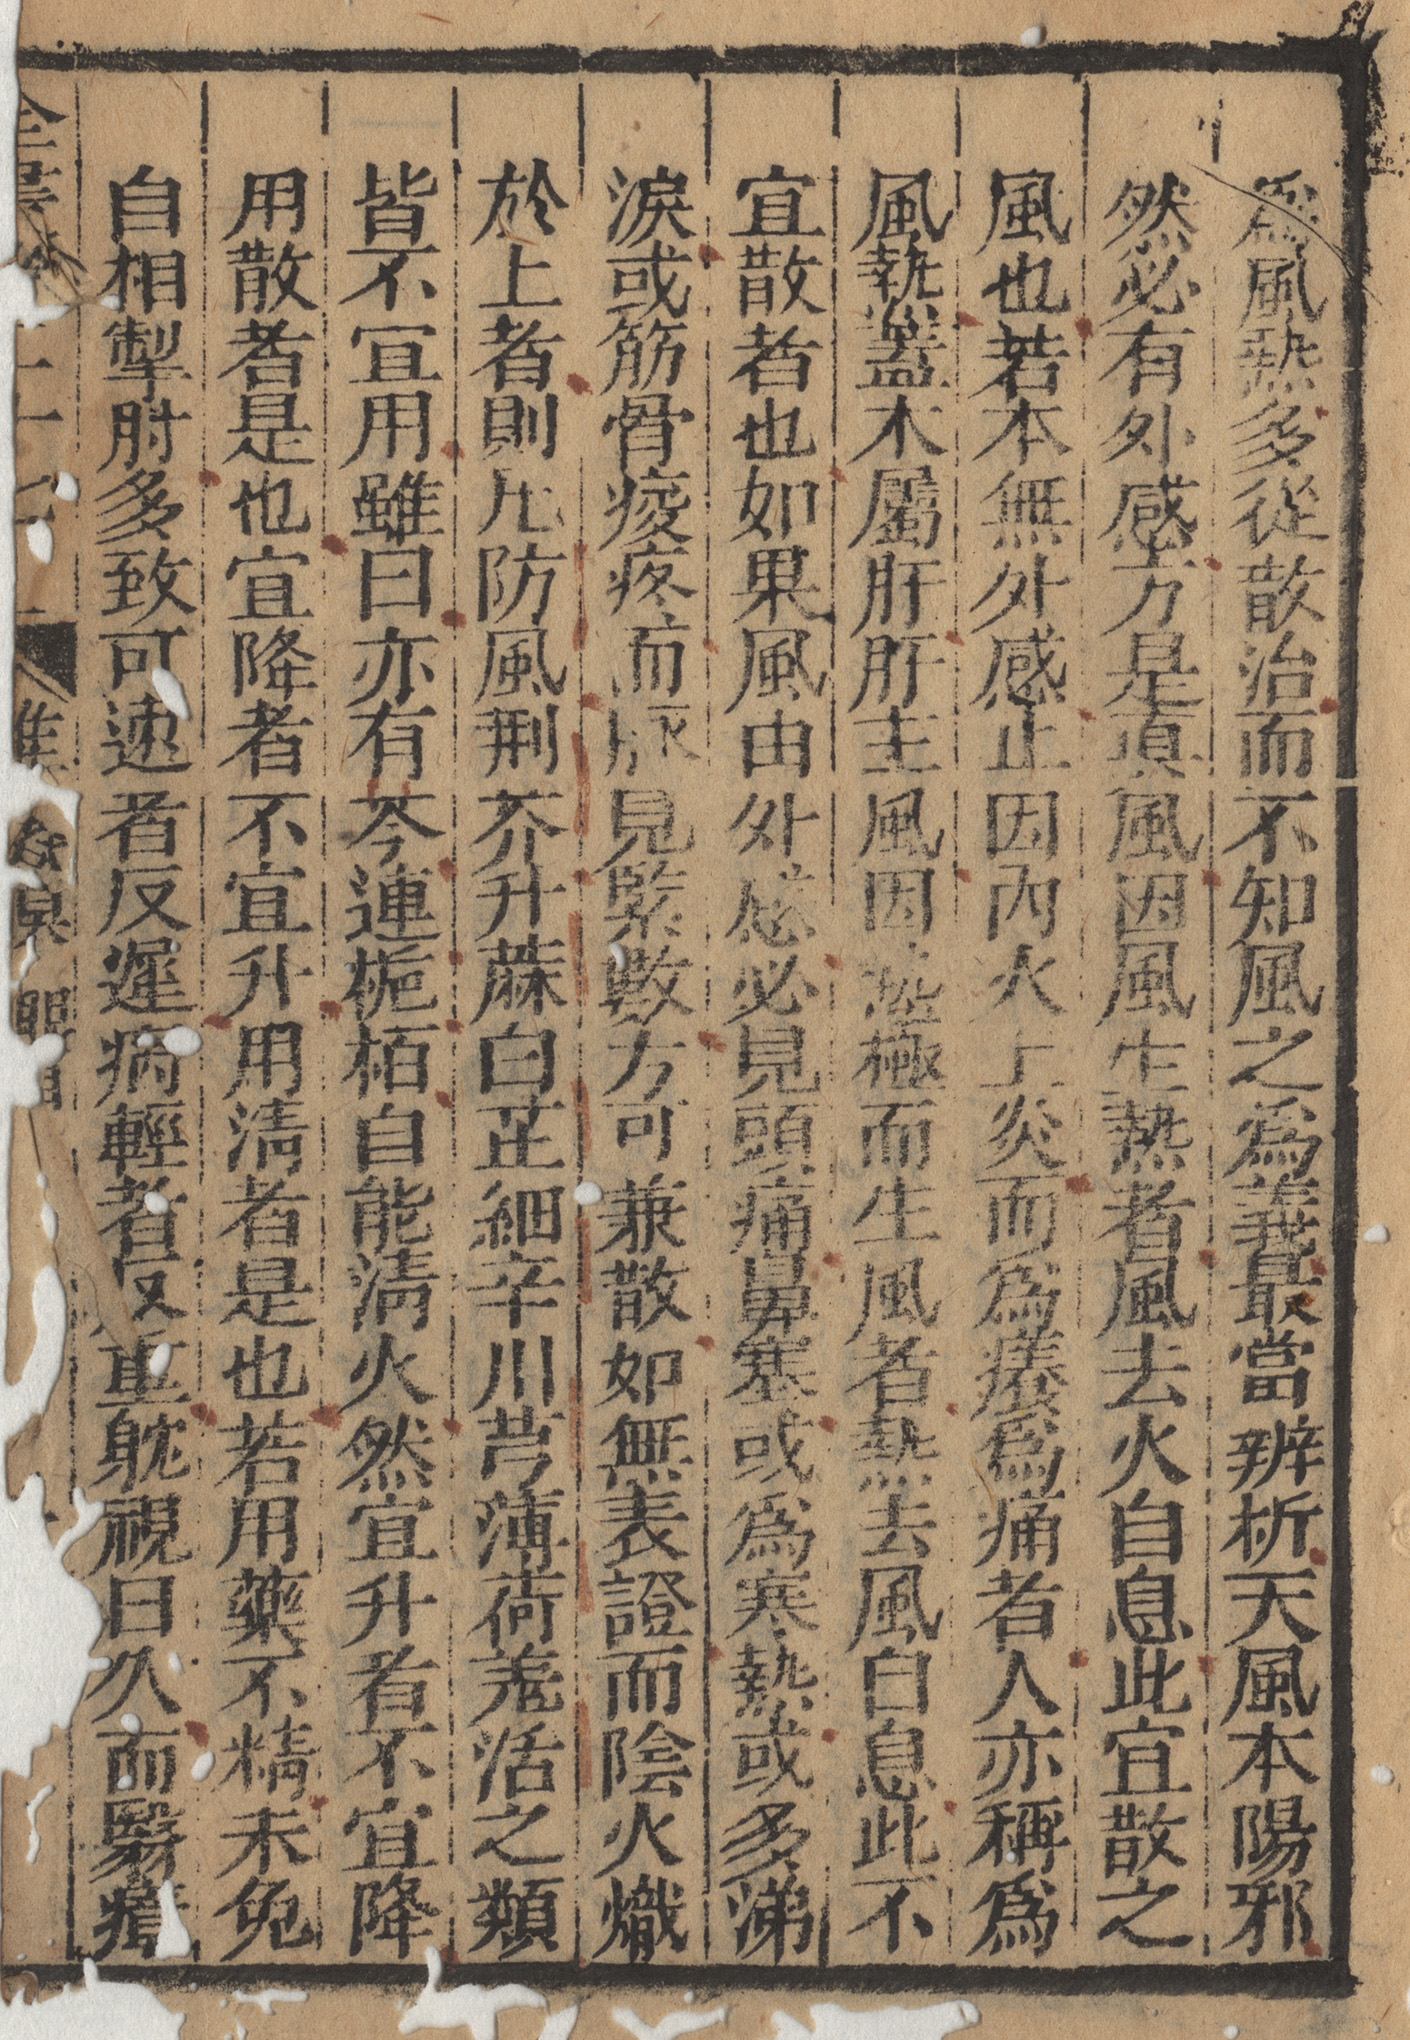 爲風熱多從散治而不知風之爲義最當辨析夫風本陽邪
然必有外感方是眞風因風生熱者風去火自息此宜散之
風也若本無外感止因內火上炎而爲癢爲痛者人亦稱爲
風熱蓋木屬肝肝主風因熱極而生風者熱去風自息此不
宜散者也如果風由外感必見頭痛鼻塞或爲寒熱或多涕
淚或筋骨痠疼而脉見緊數方可兼散如無表證而陰火熾
於上者則凡防風荆芥升蔴白芷細辛川芎薄荷羗活之類
皆不宜用雖曰亦有芩連梔栢自能淸火然宜升者不宜降
用散者是也宜降者不宜升用淸者是也若用藥不精未免
自相掣肘多致可速者反遲病輕者反重躭視日久而翳瘴
全書卷二十七